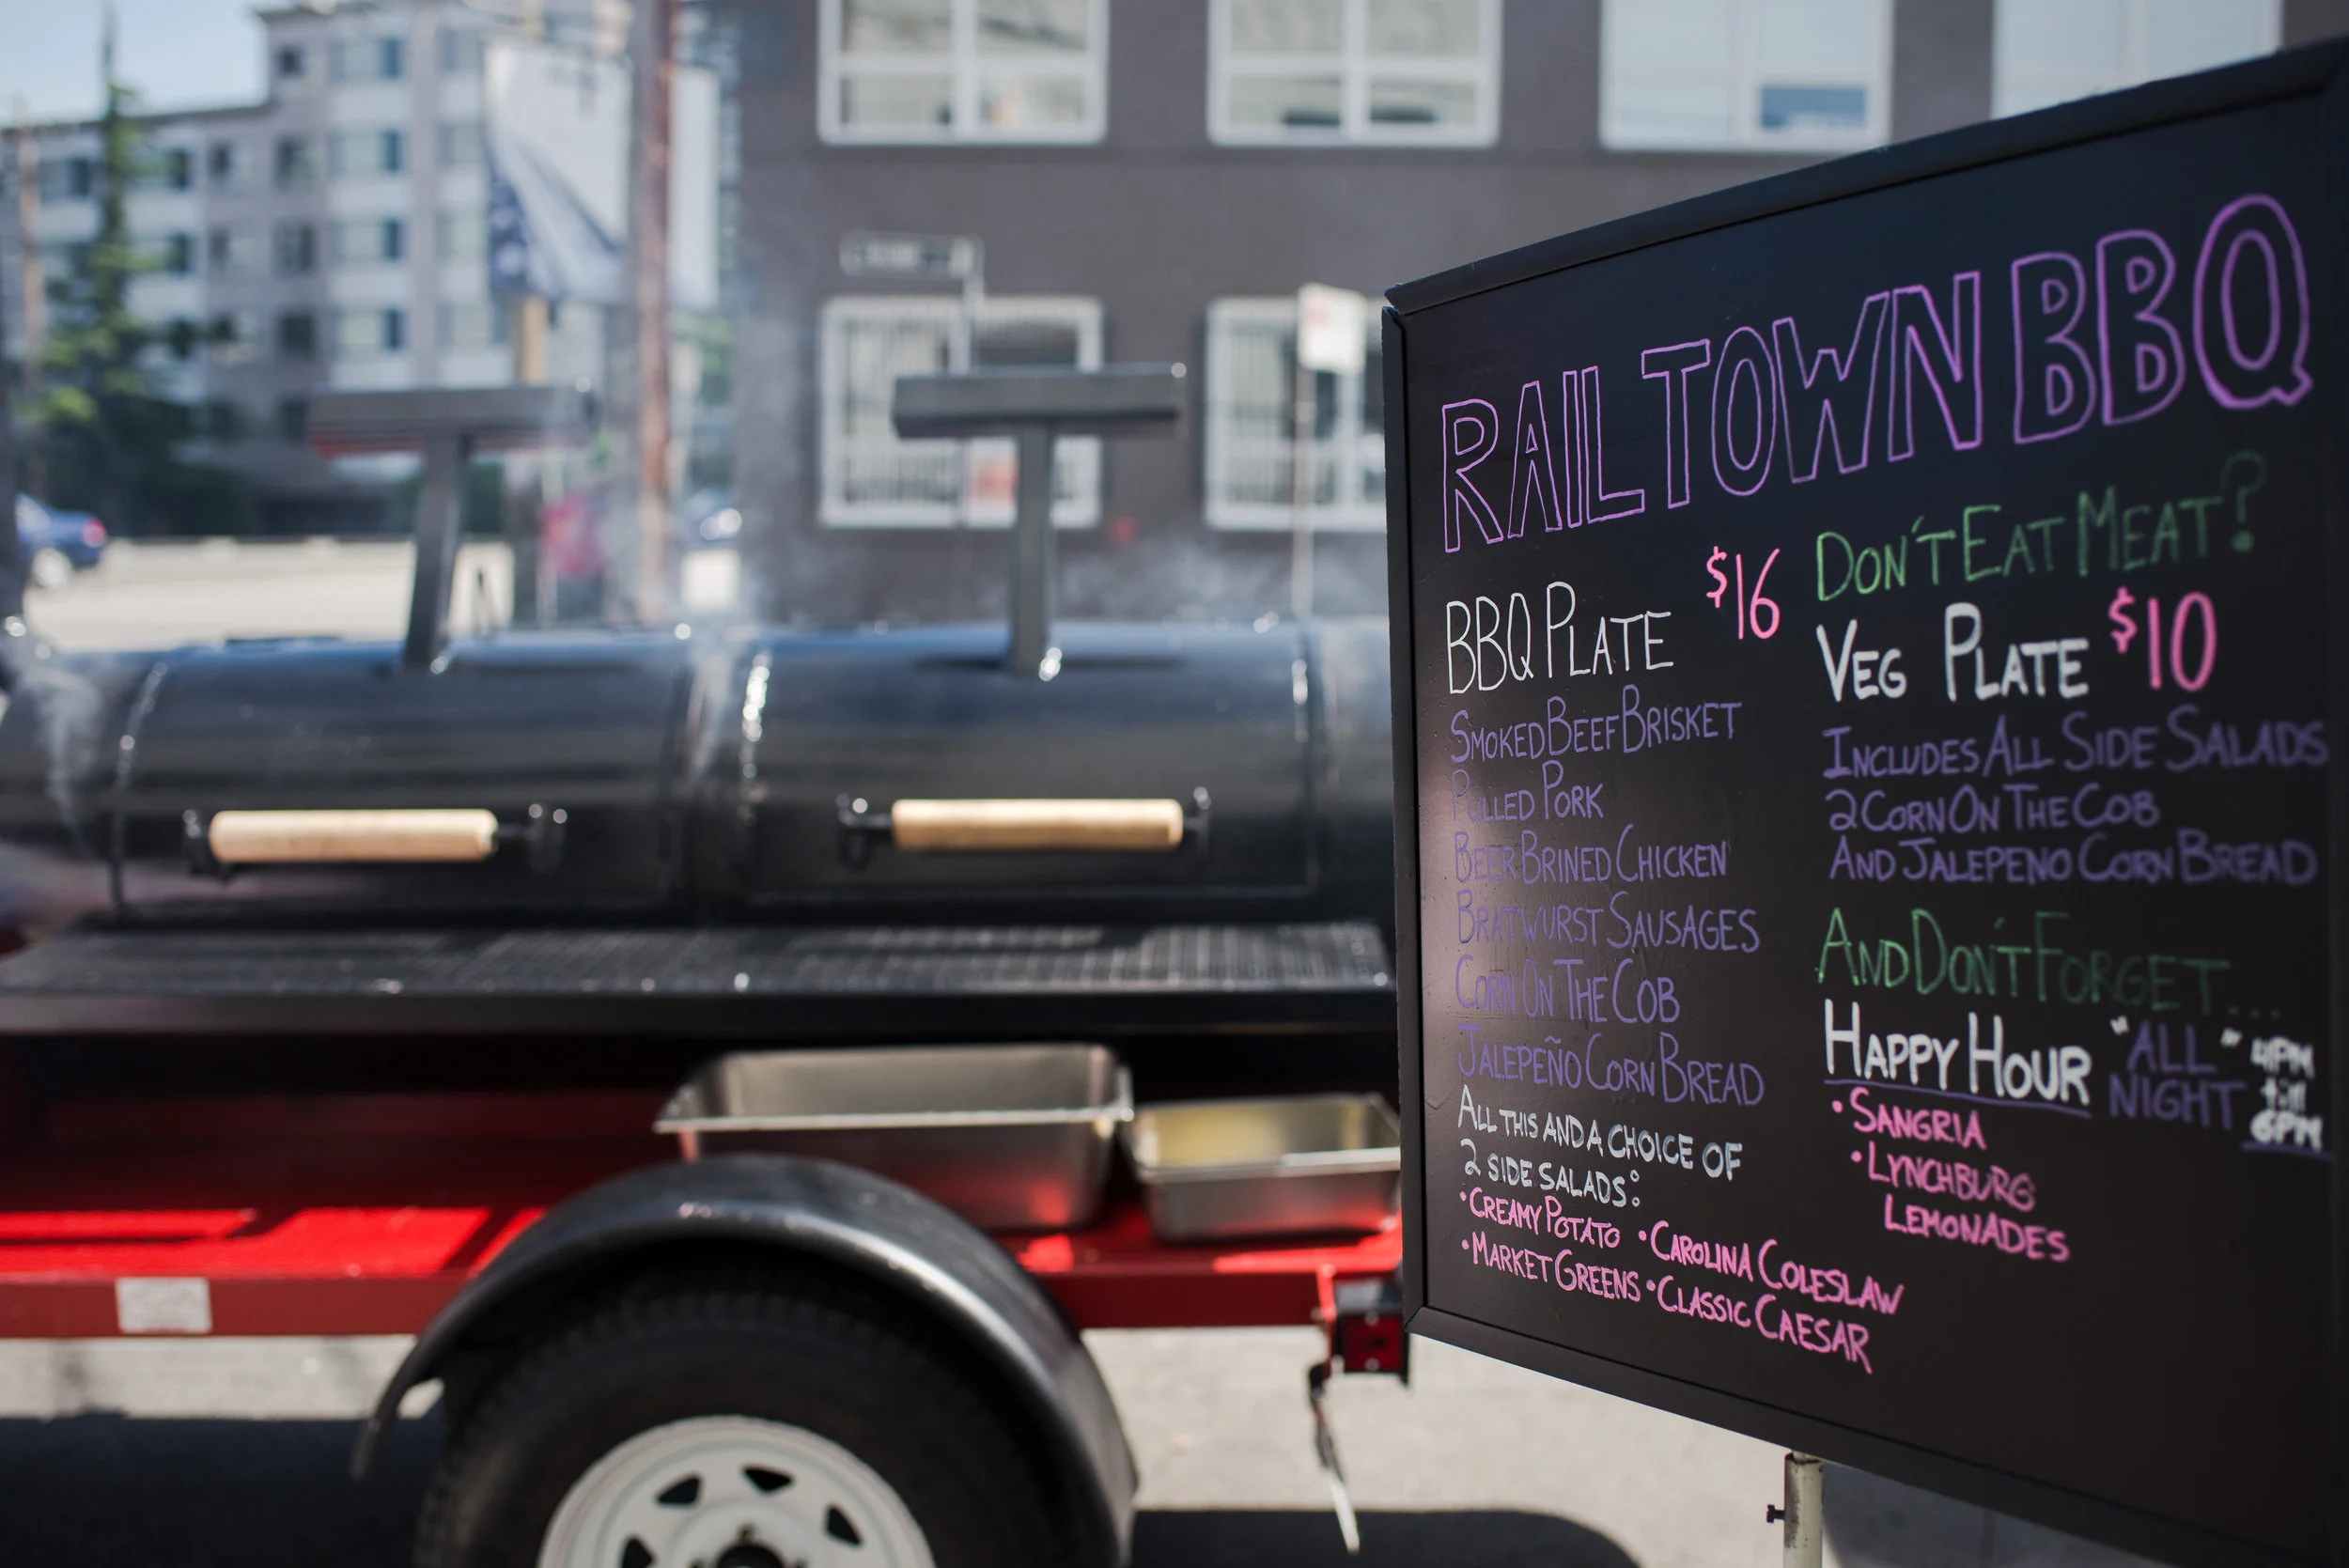 RAILTOWN BBQ
BBQ PLATE $16
SMOKED BEEF BRISKET
PULLED PORK
BEER BRINED CHICKEN
BRATWURST SAUSAGES
CORN ON THE COB
JALEPEÑO CORN BREAD
ALL THIS AND A CHOICE OF
2 SIDE SALADS:
•CREAMY POTATO •CAROLINA COLESLAW
•MARKET GREENS •CLASSIC CAESAR
DON'T EAT MEAT?
VEG PLATE $10
INCLUDES ALL SIDE SALADS
2 CORN ON THE COB
AND JALEPENO CORN BREAD
AND DON'T FORGET...
HAPPY HOUR "ALL NIGHT" 4PM till 6PM
•SANGRIA
•LYNCHBURG
LEMONADES